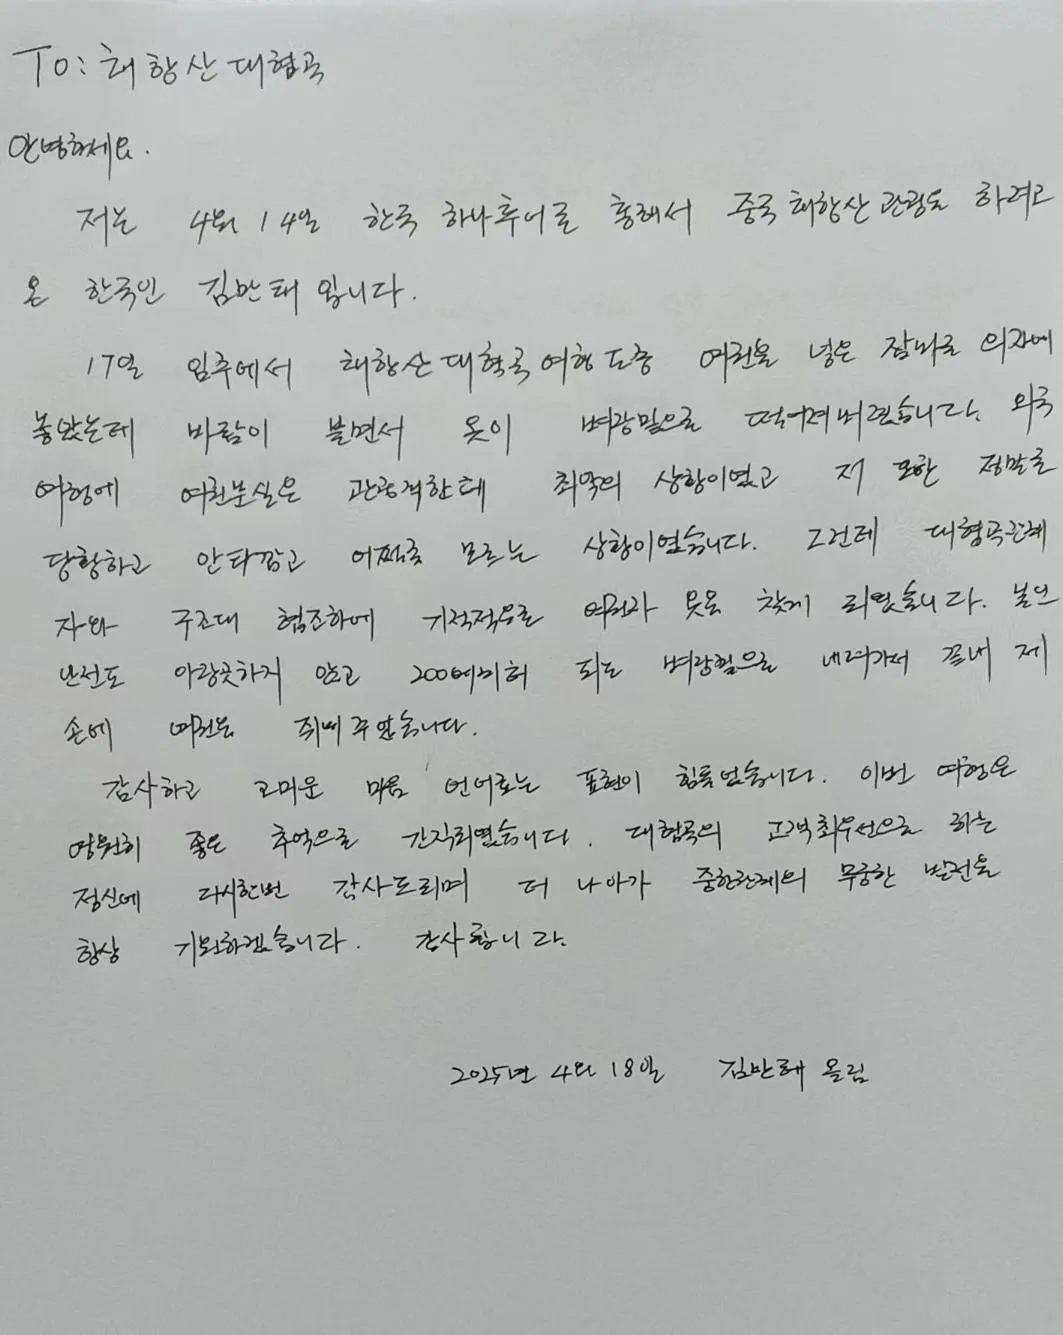 To:태항산대협곡
안녕하세요.
저는 4월 14일 한국 하나투어를 통해서 중국 태항산 관광을 하려고
온 한국인 김만태 입니다.
17일 임주에서 태항산대협곡 여행 도중 여권을 넣은 잠바를 의자에
놓았는데 바람이 불면서 옷이 벼랑밑으로 떨어져버렸습니다. 외국
여행에 여권분실은 관광객한테 최악의 상황이였고 저 또한 정말로
당황하고 안타깝고 어쩌할줄 모르는 상황이였습니다. 그런데 대협곡관계
자와 구조대 협조하에 기적적으로 여권과 옷을 찾게 되였습니다. 본인
안전도 아랑곳하지 않고 200메터여 되는 벼랑밑으로 내려가서 끝내 제
손에 여권을 쥐여 주었습니다.
감사하고 고마운 마음 언어로는 표현이 힘들었습니다. 이번 여행은
영원히 좋은 추억으로 간직되였습니다. 대협곡의 고객최우선으로 하는
정신에 다시한번 감사드리며 더 나아가 중한관계의 무궁한 발전을
항상 기원하겠습니다. 감사합니다.
2025년 4월 18일 김만태 올림